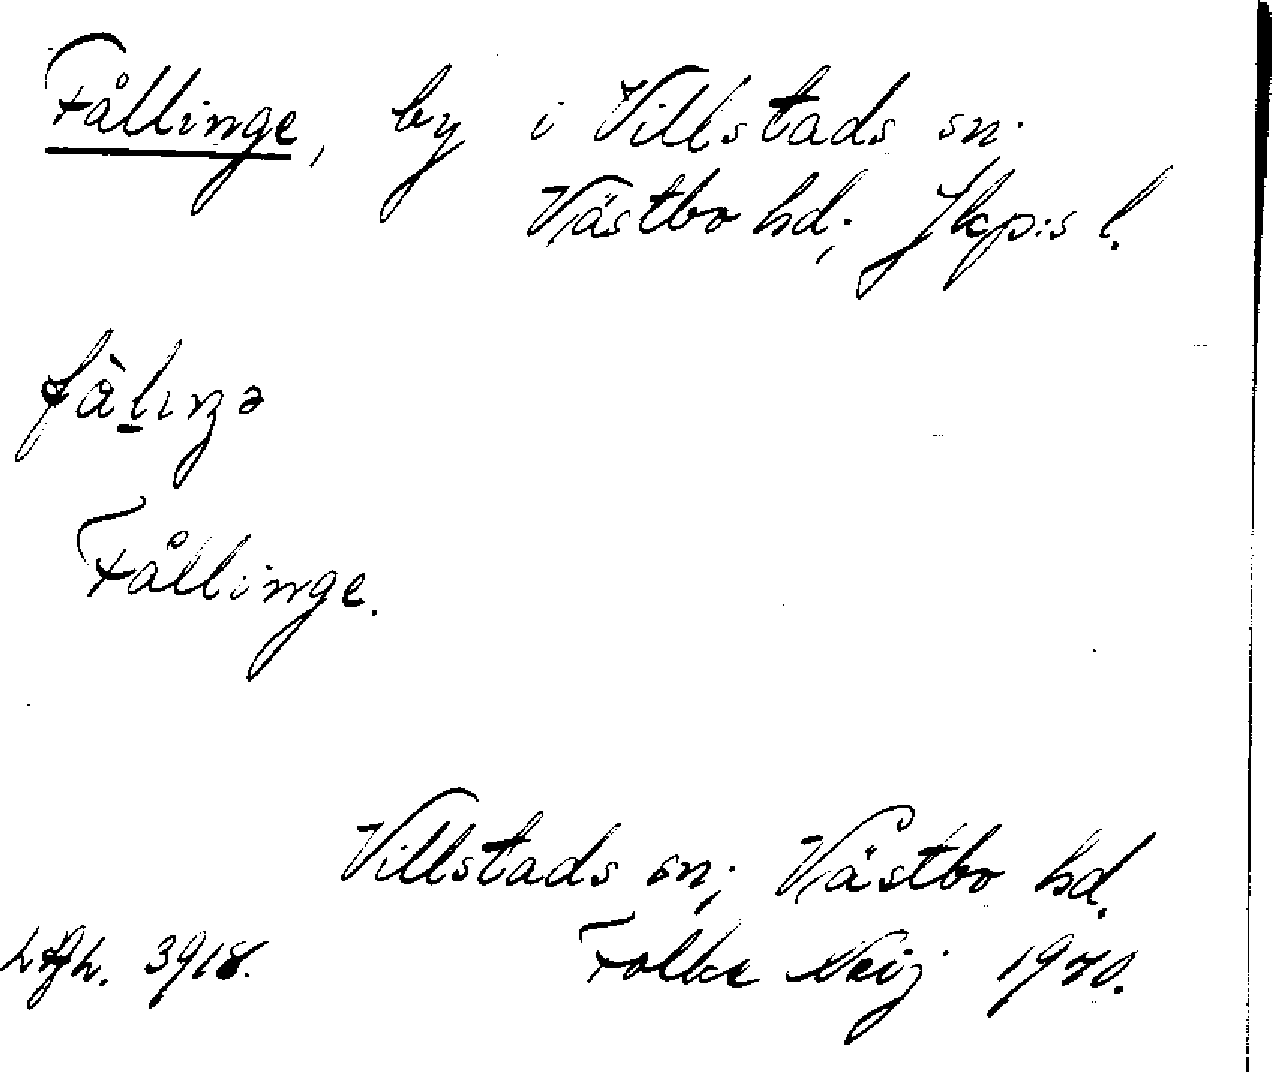 Fållinge, by i Villstads sn.
Västbo hd; Jkp:s l.
fàlıŋə
Fållinge.
Villstads sn; Västbo hd.
3918. Folke Neij 1940.